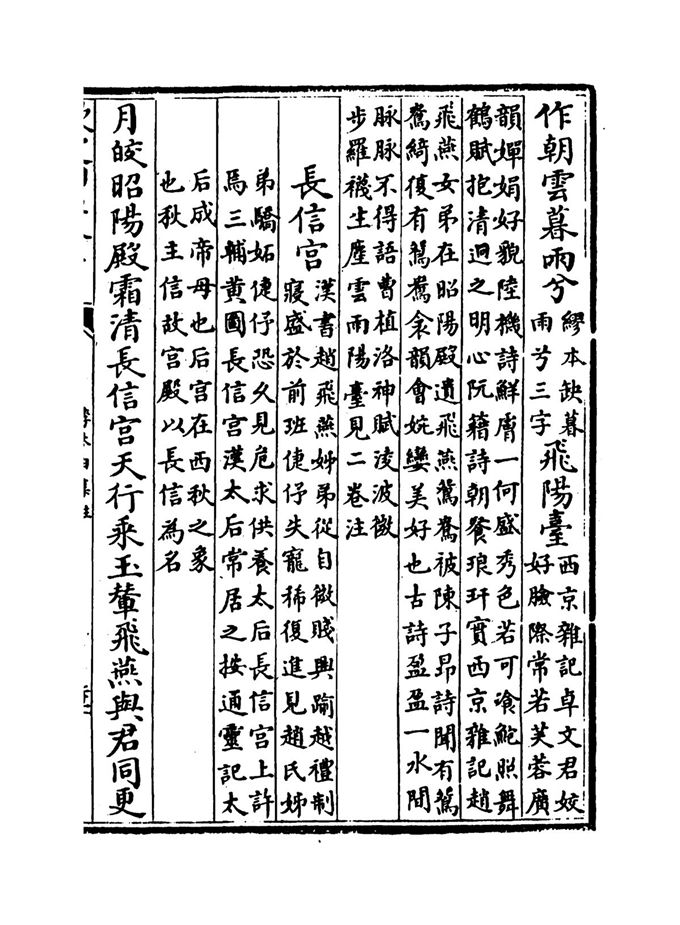 作朝雲暮雨兮繆本缺暮雨兮三字飛陽臺西京雜記卓文君姣好臉際常若芙蓉廣
韻嬋娟好貌陸機詩鮮膚一何盛秀色若可飡鮑照舞
鶴賦抱清迥之明心阮籍詩朝餐琅玕實西京雜記趙
飛燕女弟在昭陽殿遺飛燕鴛鴦被陳子昂詩聞有鴛
鴦綺復有鴛鴦衾韻會妧孌美好也古詩盈盈一水間
脉脉不得語曹植洛神賦淩波微
步羅襪生塵雲雨陽臺見二卷注
長信宮漢書趙飛燕姊弟從自微賤興踰越禮制寖盛於前班倢伃失寵稀復進見趙氏姊
弟驕妬倢伃恐久見危求供養太后長信宮上許
焉三輔黃圖長信宮漢太后常居之按通靈記太
后成帝母也后宮在西秋之象
也秋主信故宮殿以長信為名
月皎昭陽殿霜清長信宮天行乘玉輦飛燕與君同更